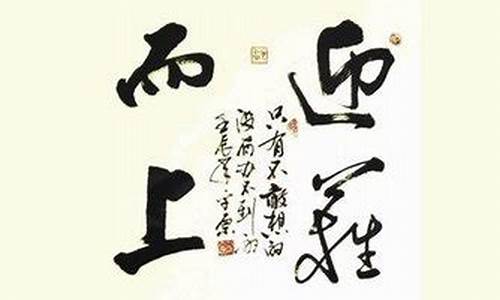 迎難
而上
只有不敢想的
没有办不到的
壬辰